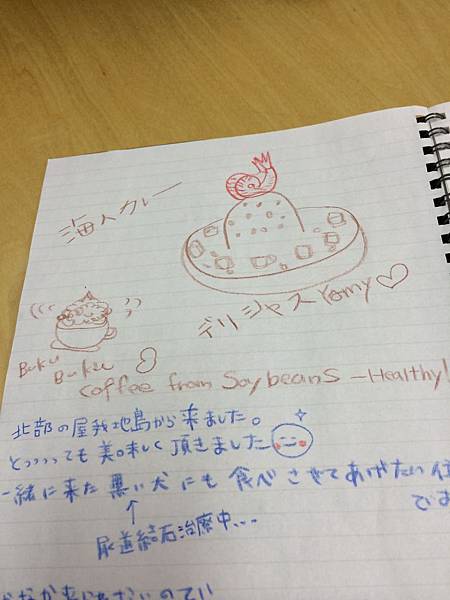 海人カレー
デリシャス Yomy♡
Buku Buku
coffee from Soybeans – Healthy!
北部の屋我地島から来ました。
とっっっっても美味しく頂きました
一緒に来た黒い犬にも食べさせてあげたい位
です
↑
尿道結石治療中...